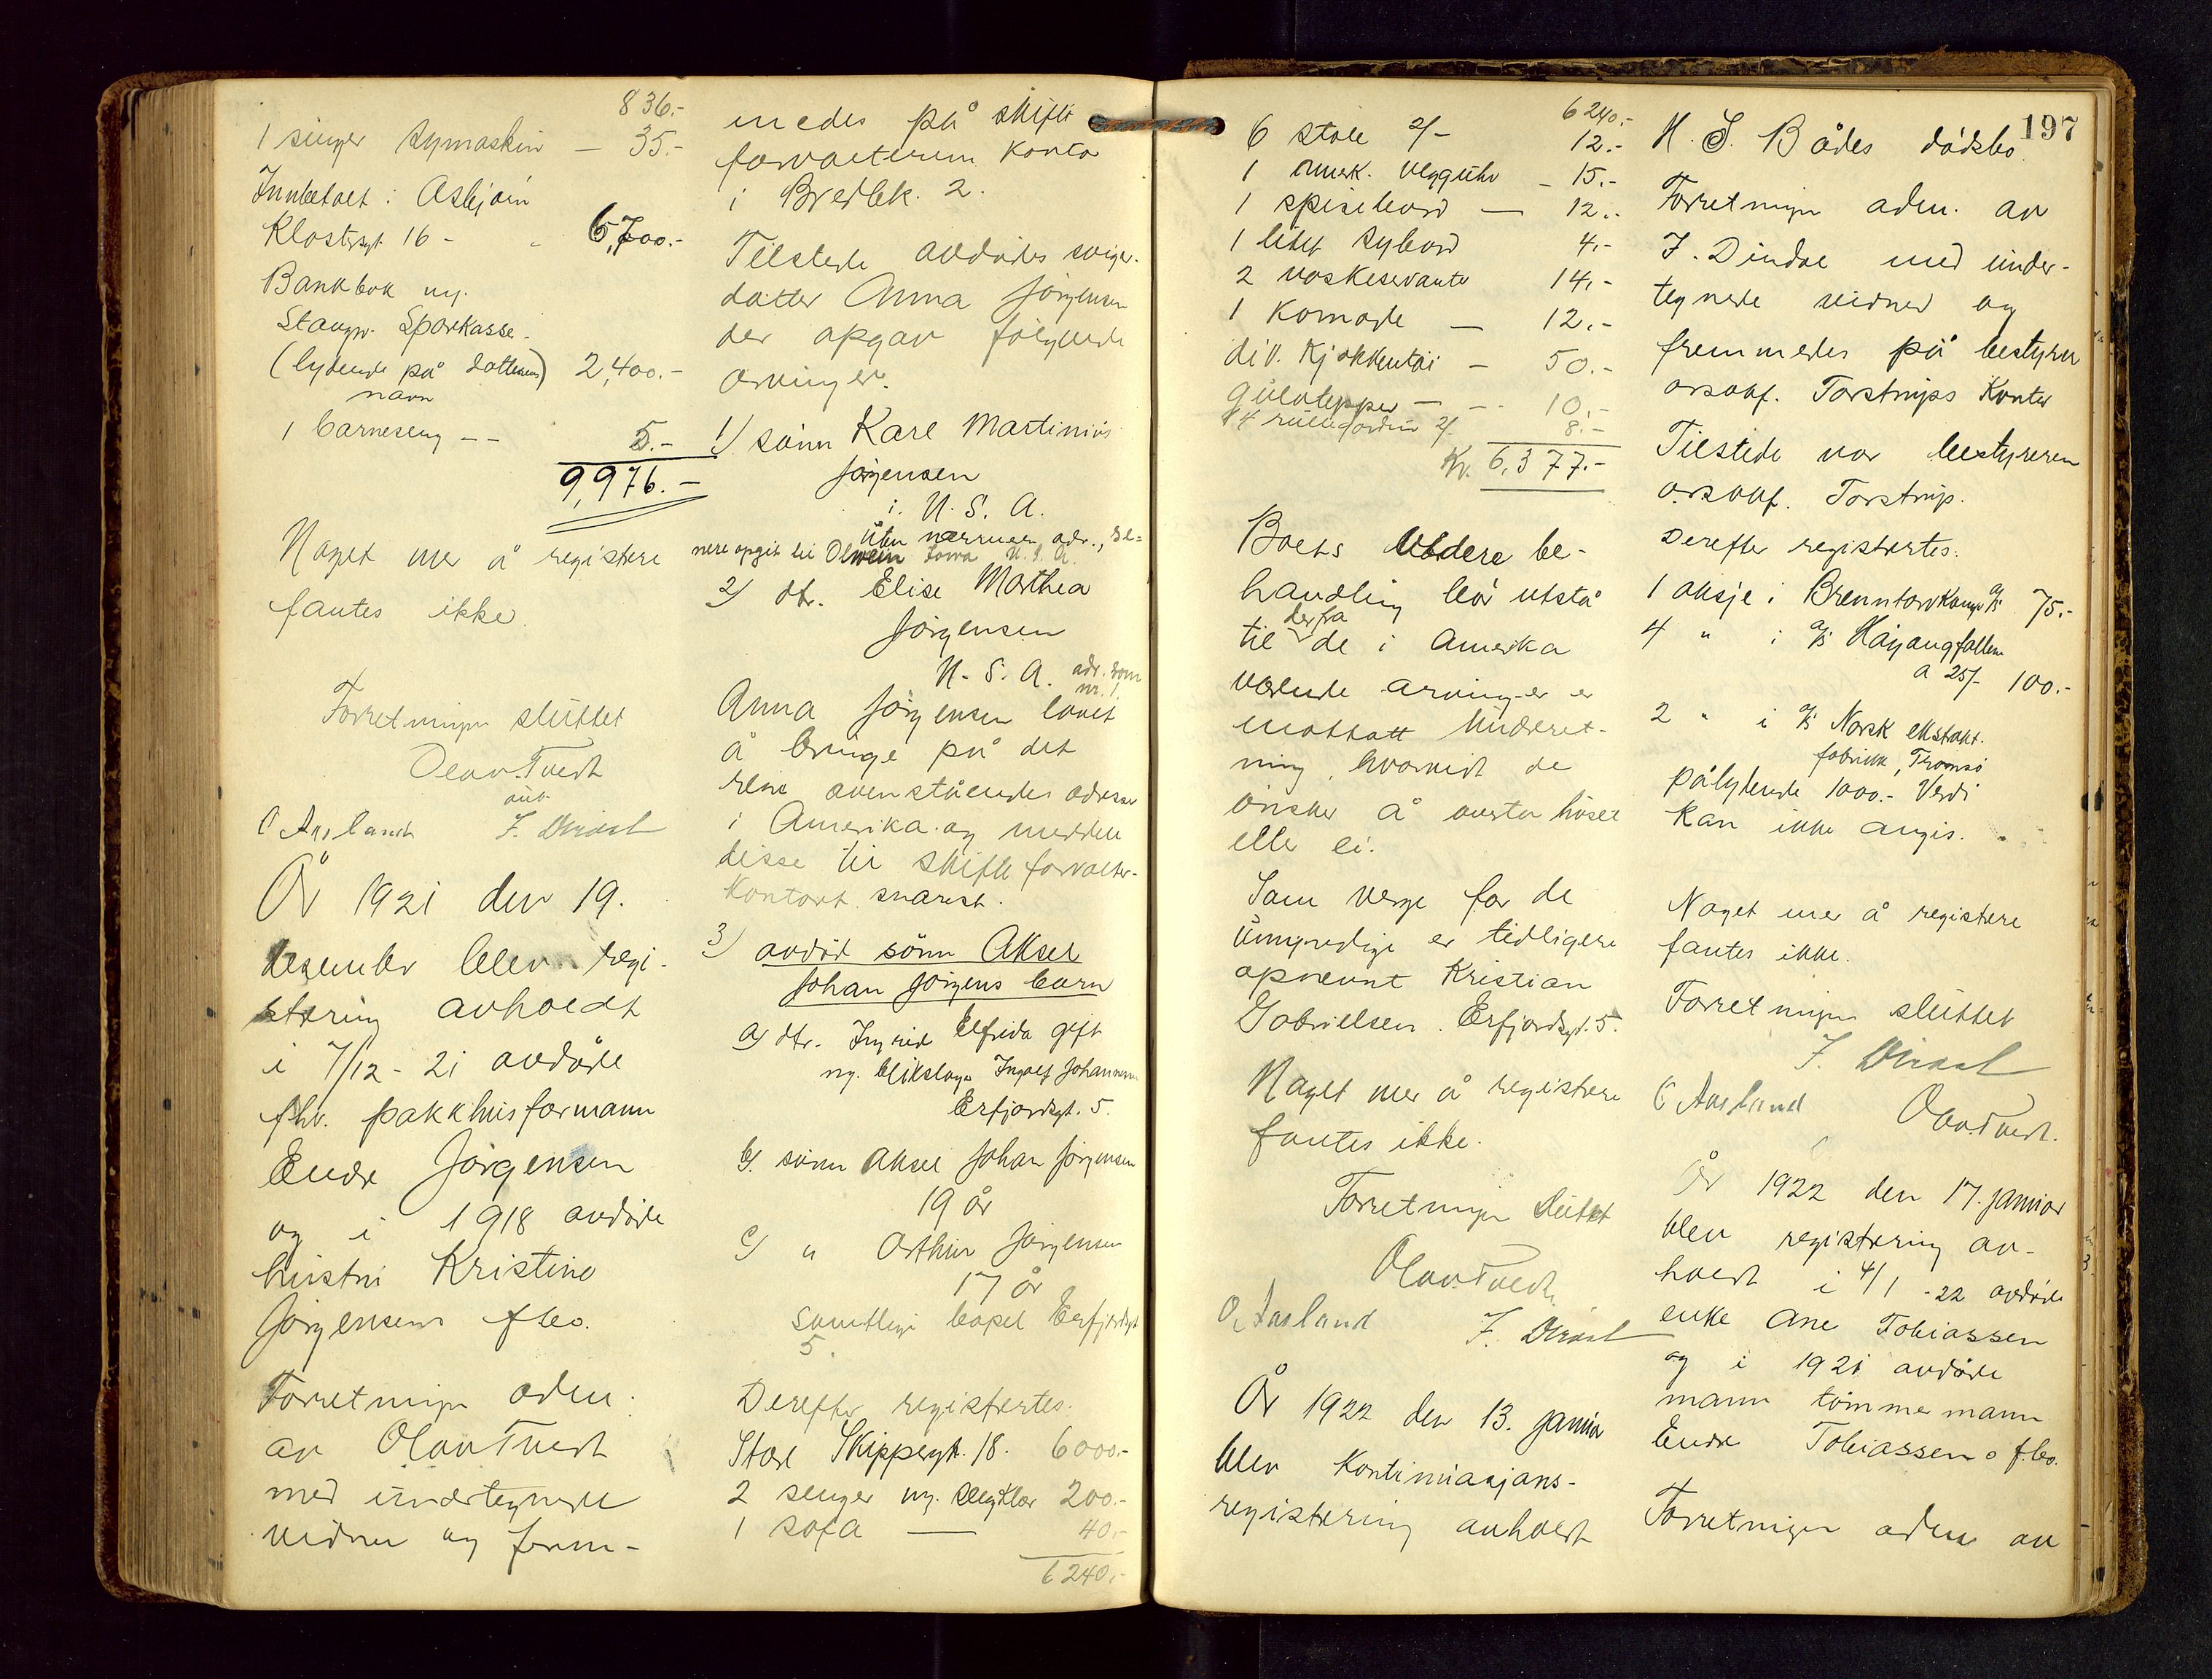 836.-
1 singer symaskin — 35.-
Innbetalt i Asbjørn
Klostersgt. 16 - 6,700.-
Bankbok
Stavgr. Sparkasse.
(lydende på datterens) 2,400.-
navn
1 barneseng -- 5.-
9,976.-
Noget mer å registere
fantes ikke.
Forretningen sluttet
Olav Tvedt
aut.
O Aasland
År 1921 den 19.
desember blev regi-
strering avholdt
i 7/12 - 21 avdøde
fhv. pakkhusformann
Endre Jørgensen
og i 1918 avdøde
hustru Kristine
Jørgensens fbo.
Forretningen adm.
av Olav Tvedt
med undertegnede
vidner og frem-
medes på skifte
forvalterens kontor
i Bredbk. 2.
Tilstede avdødes sviger-
datter Anna Jørgensen
der opgav følgende
arvinger.
1) sønn Karl Martinius
Jørgensen
i. U. S. A.
uten nærmere adr., se-
nere opgit til Olwein Iowa U. S. A.
2) dtr. Elise Marthea
Jørgensen
U. S. A. adr. som
nr. 1.
Anna Jørgensen lovet
å bringe på det
rene ovenståendes adresse
i Amerika og meddele
disse til skifteforvalter-
kontoret snarest.
3) avdød sønn Aksel
Johan Jørgens barn
a) dtr. Ingrid Elfrida gift
m. blikslager Ingolf Johannesen
Erfjordsgt. 5.
b. sønn Aksel Johan Jørgensen
19 år
c) " Arthur Jørgensen
17 år
samtlige bopel Erfjordsgt
5.
Derefter registrertes.
Skippergt. 18. 6000.-
2 senger m. sengklær 200.-
1 sofa — 40.-
6240.-
6240.-
6 stole 2/- 12.-
1 amerk. vegguhr - 15.-
1 spisebord — 12.-
1 litet sybord 4.-
2 vaskeservanter 14.-
1 komode — 12.-
div. kjøkkentøi — 50.-
gulvtepper — -- 10.-
4 rullegardin 2/- 8.-
Kr. 6,377.-
Boets videre be-
handling bør utstå
derfra
til de i Amerika
værende arvinger er
mottatt underret-
ning, hvorvidt de
ønsker å overta huset
eller ei.
Som verge for de
umyndige er tidligere
opnevnt Kristian
Gabrielsen. Erfjordsgt. 5.
Noget mer å registrere
fantes ikke.
Forretningen sluttet
Olav Tvedt.
O. Aasland
År 1922 den 13. januar
blev kontinuasjons-
registrering avholdt
197
H. S. Bådes dødsbo.
Forretningen adm. av
J. Dirdal med under-
tegnede vidner og
fremmedes på bestyrer
orsakf. Torstrups kontor
Tilstede var bestyreren
orsakf. Torstrup.
Derefter registrertes:
1 aksje i Brenntorvkomp. A/S 75.-
4 " i A/S Høyangfallene
a 25/- 100.-
2 " i A/S Norsk ekstrakt-
fabrikk, Tromsø
pålydende 1000.- Verdi
kan ikke angis.
Noget mer å registere
fantes ikke.
Forretningen sluttet
J. Dirdal
O Aasland Olav Tvedt.
År 1922 den 17. januar
blev registrering av-
holdt i 4/1 - 22 avdøde
enke Ane Tobiassen
og i 1921 avdøde
mann tømmermann
Endre Tobiassens f.bo.
Forretningen adm av